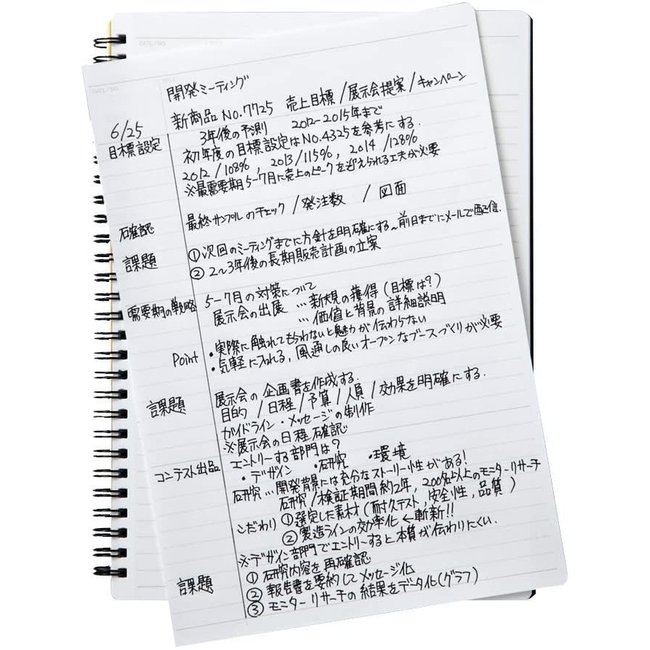 開発ミーティング
新商品 No.7725 売上目標/展示会提案/キャンペーン
6/25 3年後の予測 2012〜2015年まで
目標設定 初年度の目標設定はNo.4325を参考にする.
2012/108%, 2013/115%, 2014/128%
※最需要期5-7月に売上のピークを迎えられる工夫が必要
確認 最終サンプルのチェック/発注数 /図面
課題 ①次回のミーティングまでに方針を明確にする〜前日までにメールで配信.
②2〜3年後の長期販売計画の立案
需要期の戦略 5-7月の対策について
展示会の出展 …新規の獲得(目標は?)
…価値と背景の詳細説明
Point ・実際に触れてもらわないと魅力が伝わらない
・気軽に入れる, 風通しの良いオープンなブースづくりが必要
課題 展示会の企画書を作成する.
目的/日程/予算/人員/効果を明確にする.
ガイドライン・メッセージの制作
※展示会の日程確認
コンテスト出品 エントリーする部門は?
・デザイン ・研究 ・環境
研究…開発背景には充分なストーリー性がある!
研究/検証期間約2年, 200名以上のモニターリサーチ
こだわり ①選定した素材(耐久テスト,安全性,品質)
②製造ラインの効率化←斬新!!
※デザイン部門でエントリーすると本質が伝わりにくい.
課題 ①研究内容を再確認
②報告書を要約してメッセージ化
③モニターリサーチの結果をデータ化(グラフ)